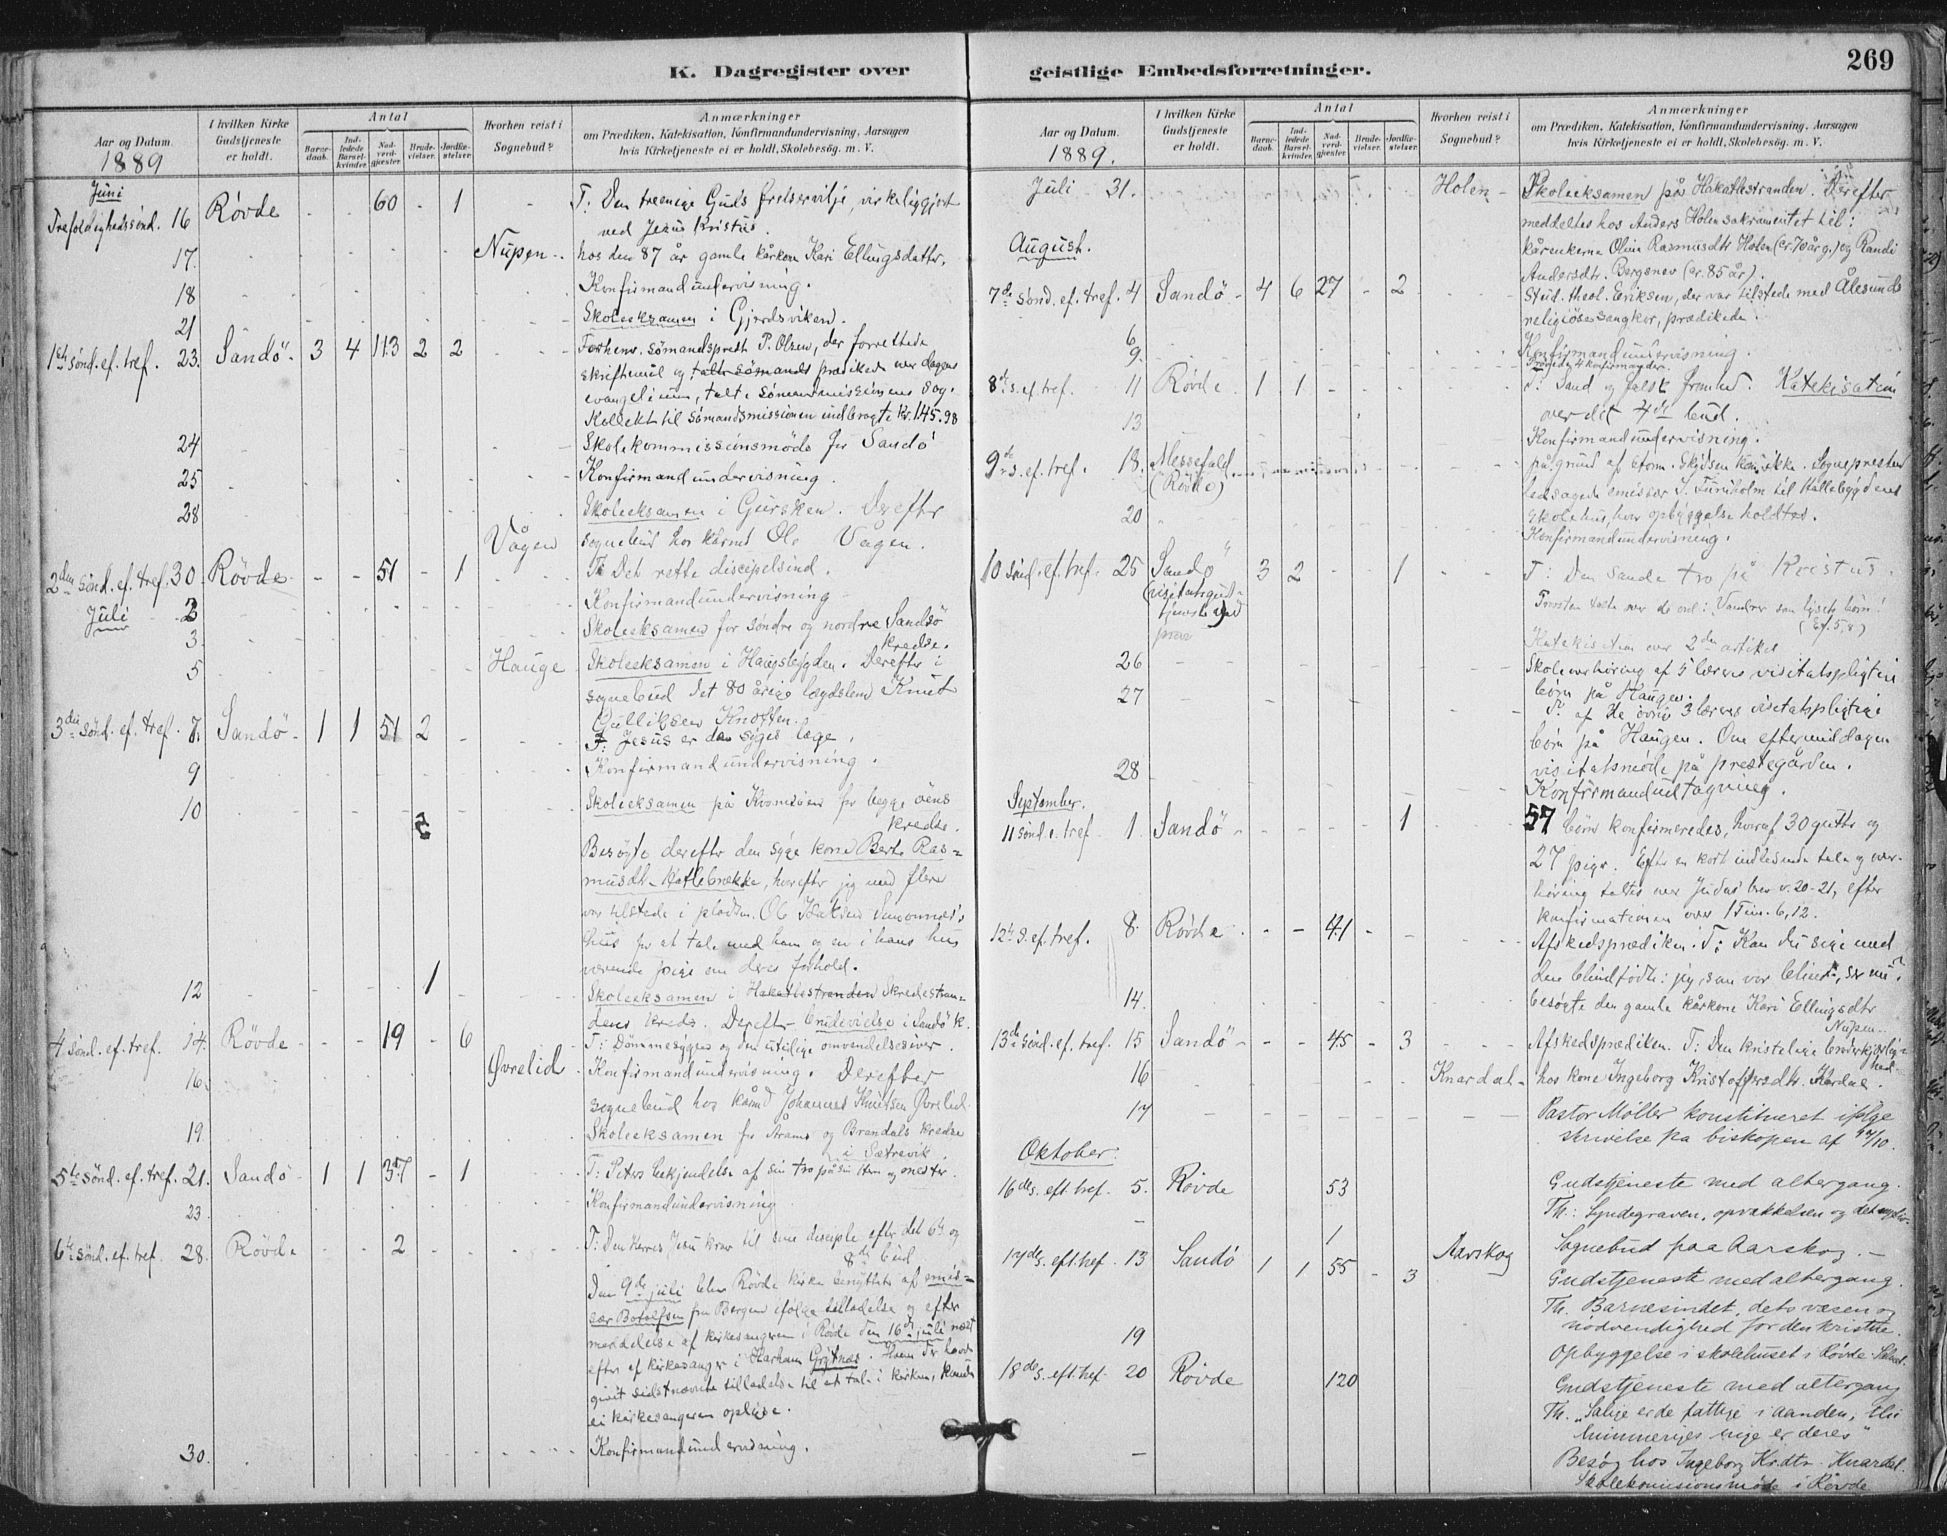 K. Dagregister over
Aar og Datum.
1889
I hvilken Kirke Gudstjeneste er holdt.
Antal
Barnedaab.
Indledede Barselkvinder.
Nadverdgjæster.
Brudevielser.
Jordfæstelser.
Hvorhen reist i Sognebud?
Anmærkninger
om Prædiken, Katekisation, Konfirmandundervisning, Aarsagen
hvis Kirketjeneste ei er holdt, Skolebesøg. m. V.
Juni
Trefoldighedssønd. 16 Røvde - - 60 - 1 T: Den treenige Guds frelservilje, virkeliggjort
ved Jesus Kristus.
17. Nupen hos den 87 år gamle kårkone Kari Ellingsdatter.
18 Konfirmandundervisning.
21 Skoleeksamen i Gjerdsviken.
1ste sønd. ef. tref. 23. Sandø 3 4 113 2 2 Forhenv. sømandsprest P. Olsen, der forrettede
skriftemål og talte sømands prædiken over dagens
evangelium, talte sømandsmissionens sag.
Kollekt til sømandsmissionen indbragte kr. 145.98
24 Skolekommissionsmøde for Sandø
25 Konfirmandundervisning.
28 Skoleeksamen i Gursken. Derefter
Vågen sognebud hos kårmd Ole Vågen.
2den sønd. ef. tref. 30. Røvde - - 51 - 1 T: Det rette discipelsind.
Juli 2 Konfirmandundervisning
3 Skoleeksamen for søndre og nordre Sandsø
kredse.
5 Hauge Skoleeksamen i Haugsbygden. Derefter i
sognebud det 80 årige lægdslem Knut
Gulliksen Knotten.
3die sønd. ef. tref. 7. Sandø 1 1 51 2 T: Jesus er de syges læge.
9 Konfirmandundervisning.
10 Skoleeksamen på Kvamsøen for begge øens
kredse.
Besøgte derefter den syge kone Berte Ras=
musdtr. Hatlebrække, hvorefter jeg med flere
var tilstede i pladsm. Ole Isaksen Simonnes's
hus for at tale med ham og en i hans hus
værende pige om deres forhold.
12 1 Skoleeksamen i Hakallestranden Skredestran=
dens kreds. Derefter brudevielse i Sandø k.
4 sønd. ef. tref. 14. Røvde - - 19 - 6 T: Dømmesygen og den utidige omvendelsesiver.
16. Øvrelid Konfirmandundervisning. Derefter
sognebud hos kårmd Johannes Knutsen Øvrelid.
19. Skoleeksamen for Årams og Brandals kredse
i Sætrevik.
5te sønd. ef. tref. 21. Sandø 1 1 37 - 1 T: Peters bekjendelse af sin tro på sin Herre og mester.
23. Konfirmandundervisning
6te sønd. ef. tref. 28. Røvde - - 2 T: Den Herres Jesu krav til sine disciple efter det 6te og
8de bud
Den 9de juli blev Røvde kirke benyttet af emis=
sær Botolfsen fra Bergen ifølge tilladelse og efter
meddelelse af kirkesangeren i Røvde den 16de juli næst
efter af kirkesanger i Harham Grytnes. Hvem der havde
givet sidstnævnte tilladelse til at tale i kirken, kunde
ei kirkesangeren oplyse.
30. Konfirmandundervisning.
geistlige Embedsforretninger.
269
Aar og Datum.
1889.
I hvilken Kirke Gudstjeneste er holdt.
Antal
Barnedaab.
Indledede Barselkvinder.
Nadverdgjæster.
Brudevielser.
Jordfæstelser.
Hvorhen reist i Sognebud?
Anmærkninger
om Prædiken, Katekisation, Konfirmandundervisning, Aarsagen
hvis Kirketjeneste ei er holdt, Skolebesøg. m. V.
Juli 31. Holen Skoleeksamen på Hakallestranden. Derefter
meddeltes hos Anders Holen sakramentet til:
kårenkerne Oline Rasmusdtr Holen (cr. 70 år g.) og Randi
August. Andersdtr. Bergsnev (cr. 85 år).
7de sønd. ef. tref. 4 Sandø 4 6 27 - 2 Stud. theol. Eriksen, der var tilstede med Ålesunds
religiøse sangkor, prædikede.
6 Konfirmandundervisning.
9. Prøvede 4 konfirmander.
8de s. ef. tref. 11 Røvde 1 1 T: Sand og falsk fromhed. Katekisation
over det 4de bud.
13 Konfirmandundervisning.
9de s. ef. tref. 18. Messefald (Røvde) på grund af storm. Skydsen kom ikke. Sognepresten
ledsagede emissær J. Furuholm til Hallebygdens
skolehus, hvor opbyggelse holdtes.
20 Konfirmandundervisning.
10 sønd. ef. tref. 25 Sandø 3 2 - - 1 T: Den sande tro på Kristus.
(visitatsgud=
tjeneste ved
Provsten talte over de ord: Vandrer som lysets børn! (Ef. 5, 8)
Katekisation over 2den artikel
26 Skoleoverhøring af 5 læreres visitatspligtige
børn på Haugen.
27 af de øvrige 3 læreres visitatspligtige
børn på Haugen. Om eftermiddagen
visitatsmøde på præstegården.
28 Konfirmandudtagning.
September.
11 sønd. e. tref 1. Sandø 1 57 børn konfirmeredes, hvoraf 30 gutter og
27 piger. Efter en kort indledende tale og over=
høring taltes over Judas' brev v. 20-21, efter
konfirmationen over 1 Tim. 6, 12.
12te s. ef. tref. 8. Røvde - - 41 Afskedsprædiken. T: Kan du sige med
den blindfødte: jeg, som var blind, ser nu?
14. besøgte den gamle kårkone Kari Ellingsdtr
Nupen.
13de sønd. ef. tref. 15 Sandø - - 45 - 3 Afskedsprædiken. T: Den kristelige broderkjærlig=
hed.
16 Knardal hos kone Ingeborg Kristoffersdtr. Knardal.
17 Pastor Møller konstitueret ifølge
skrivelse fra biskopen af
Oktober.
16de s. eft. tref. 5. Røvde 53 Gudstjeneste med altergang.
Th.: Syndegraven, opvækkelsen og det nye liv.
- 1 Aarskog Sognebud paa Aarskog. -
17de s. eft. tref. 13 Sandø 1 1 55 - 3 Gudstjeneste med altergang.
Th. Barnesindet, dets væsen og
nødvendighed for den kristne.
19 Opbyggelse i skolehuset i Røvde
18de s. eft. tref. 20 Røvde 120 Gudstjeneste med altergang
Th. "Salige er de fattige i aanden, thi
himmeriges rige er deres"
- Besøg hos Ingeborg Krdtr. Knardal.
Skolekomissionsmøde i Røvde